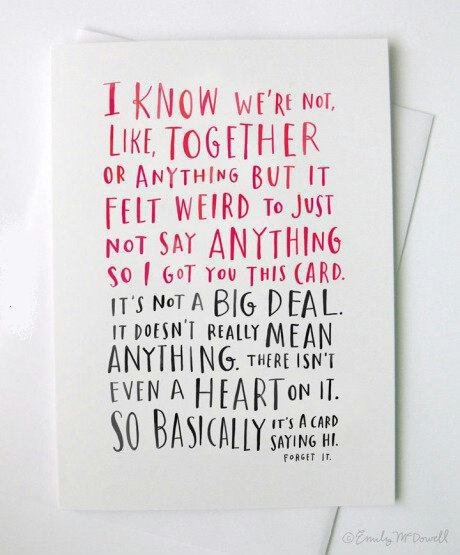 I KNOW WE'RE NOT,
LIKE, TOGETHER
OR ANYTHING BUT IT
FELT WEIRD TO JUST
NOT SAY ANYTHING
SO I GOT YOU THIS CARD.
IT'S NOT A BIG DEAL.
IT DOESN'T REALLY MEAN
ANYTHING. THERE ISN'T
EVEN A HEART ON IT.
SO BASICALLY IT'S A CARD
SAYING HI.
FORGET IT.
©Emily McDowell